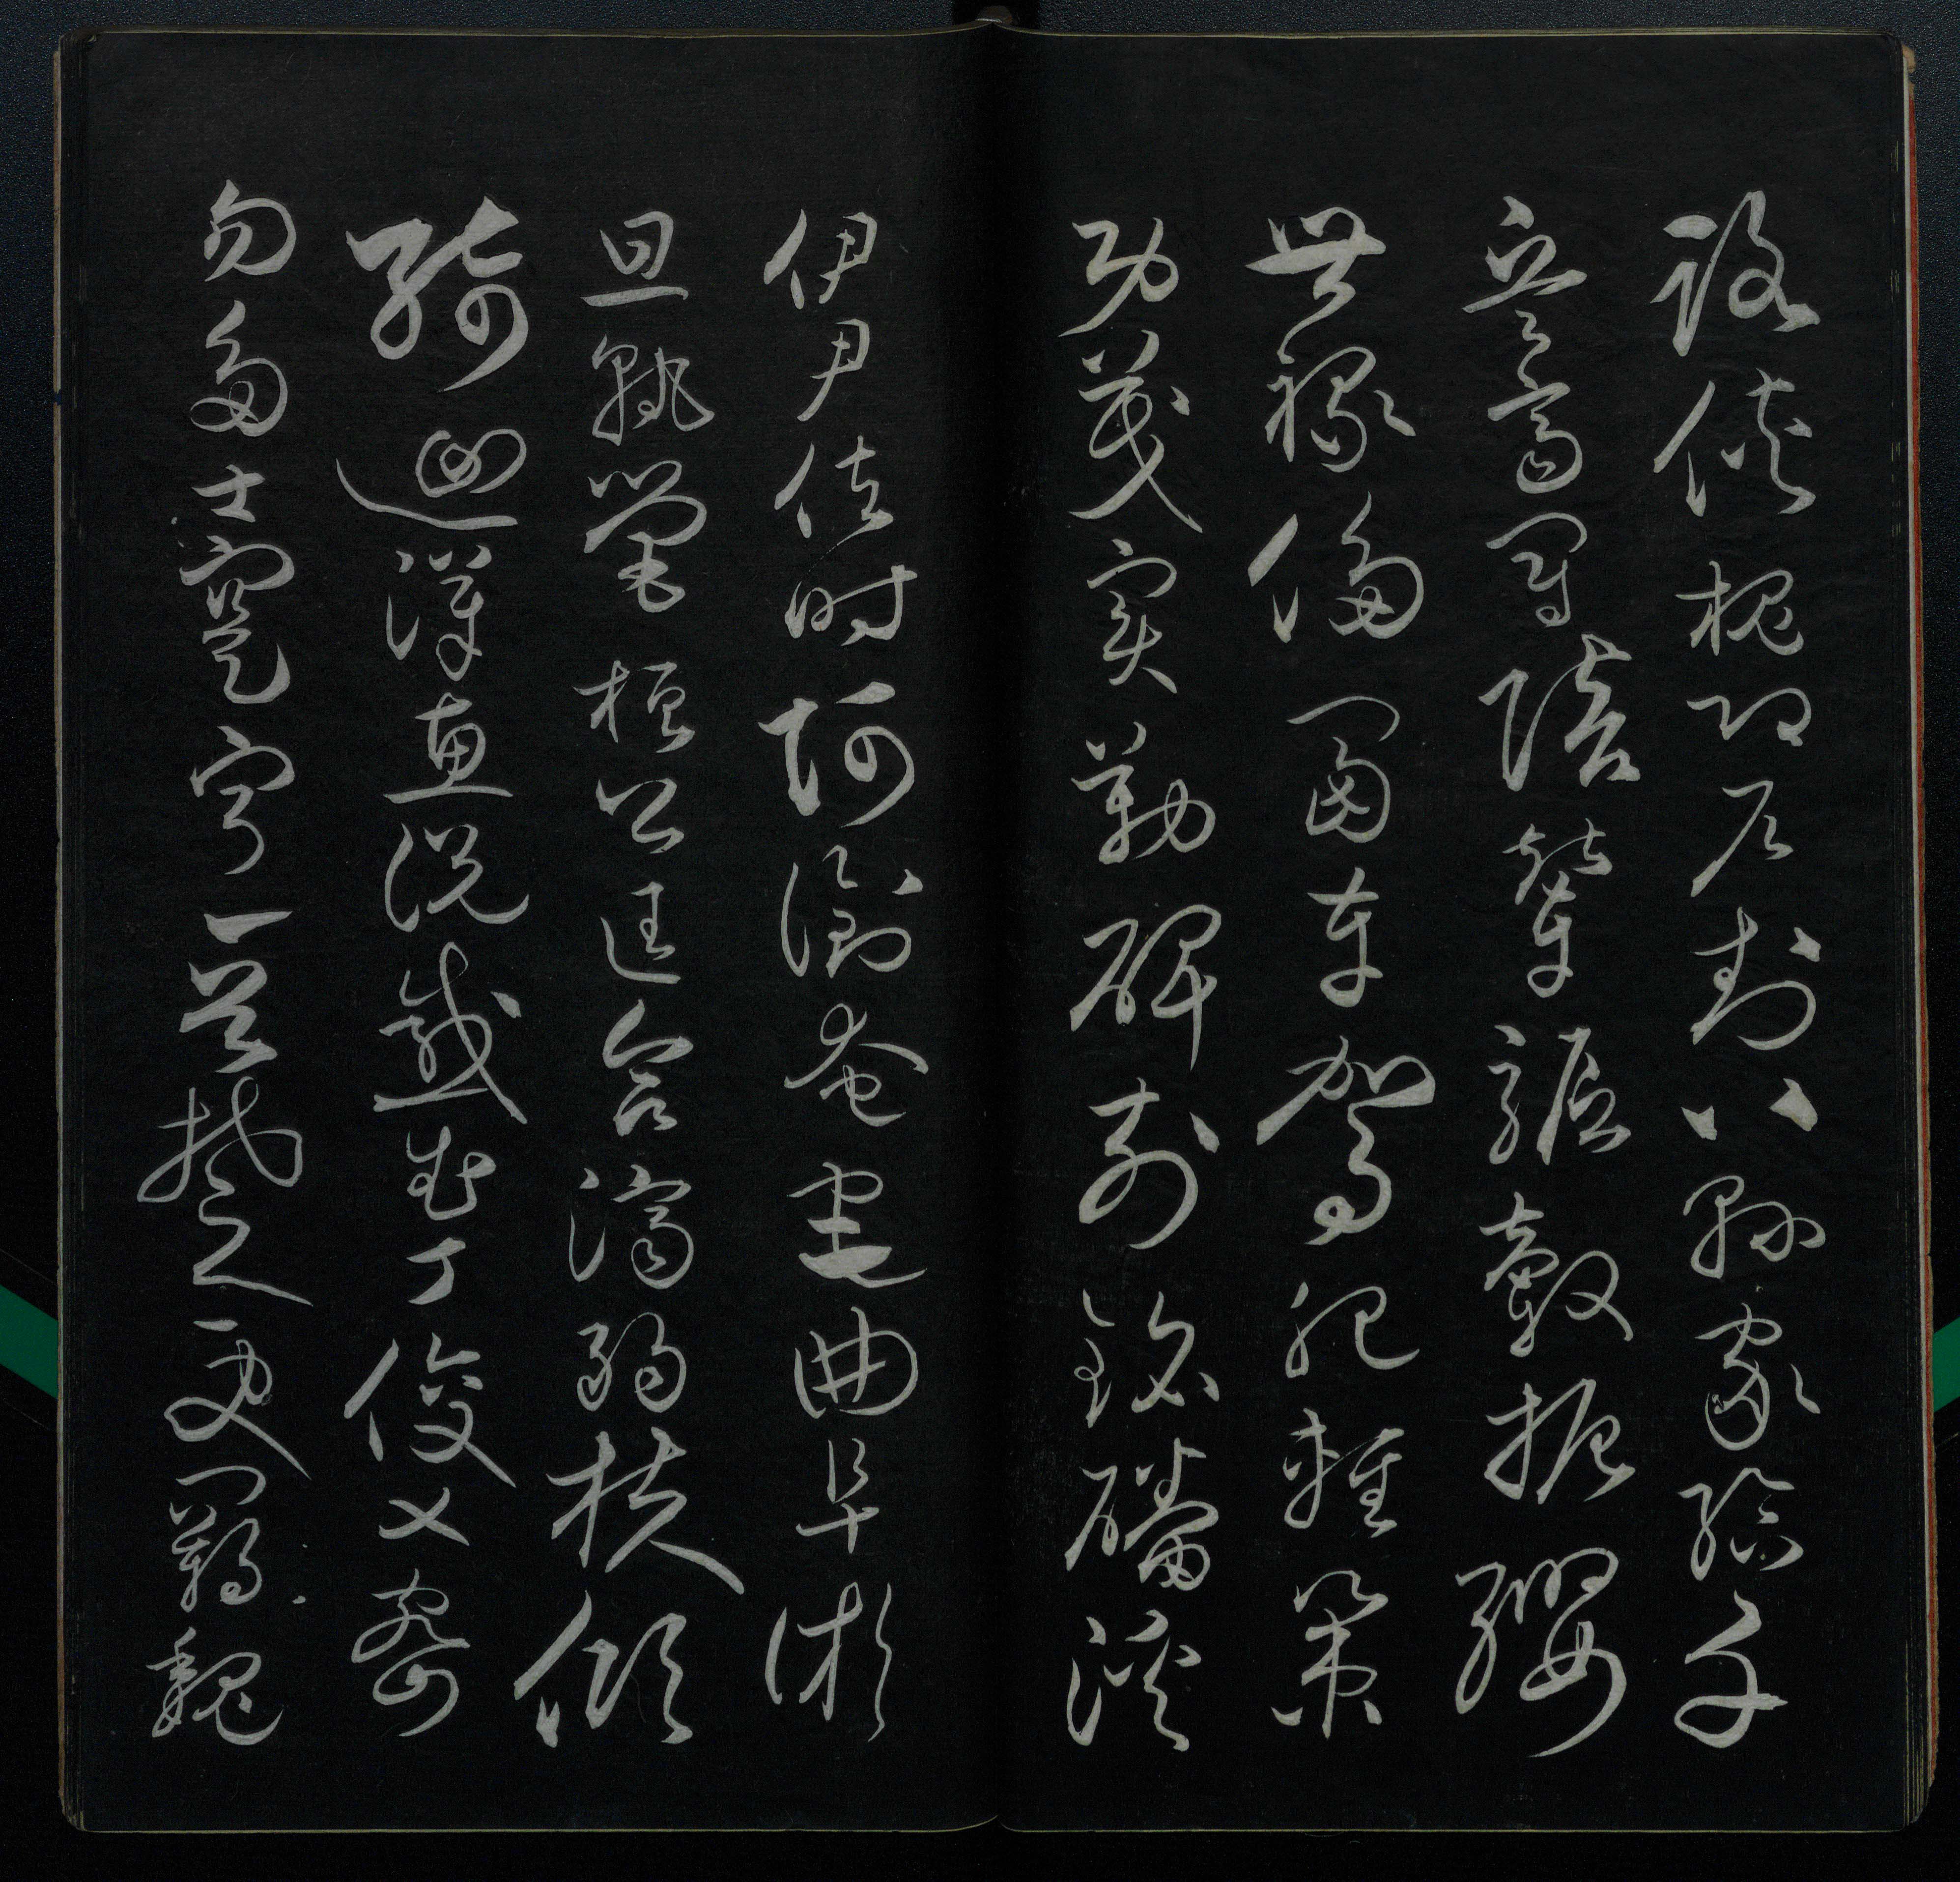 路俠槐卿戶封八縣家給千
兵高冠陪輦驅轂振纓
世祿侈富車駕肥輕策
功茂實勒碑刻銘磻溪
伊尹佐時阿衡奄宅曲阜微
旦孰營桓公匡合濟弱扶傾
綺迴漢惠說感武丁俊乂密
勿多士寔寧晉楚更霸魏